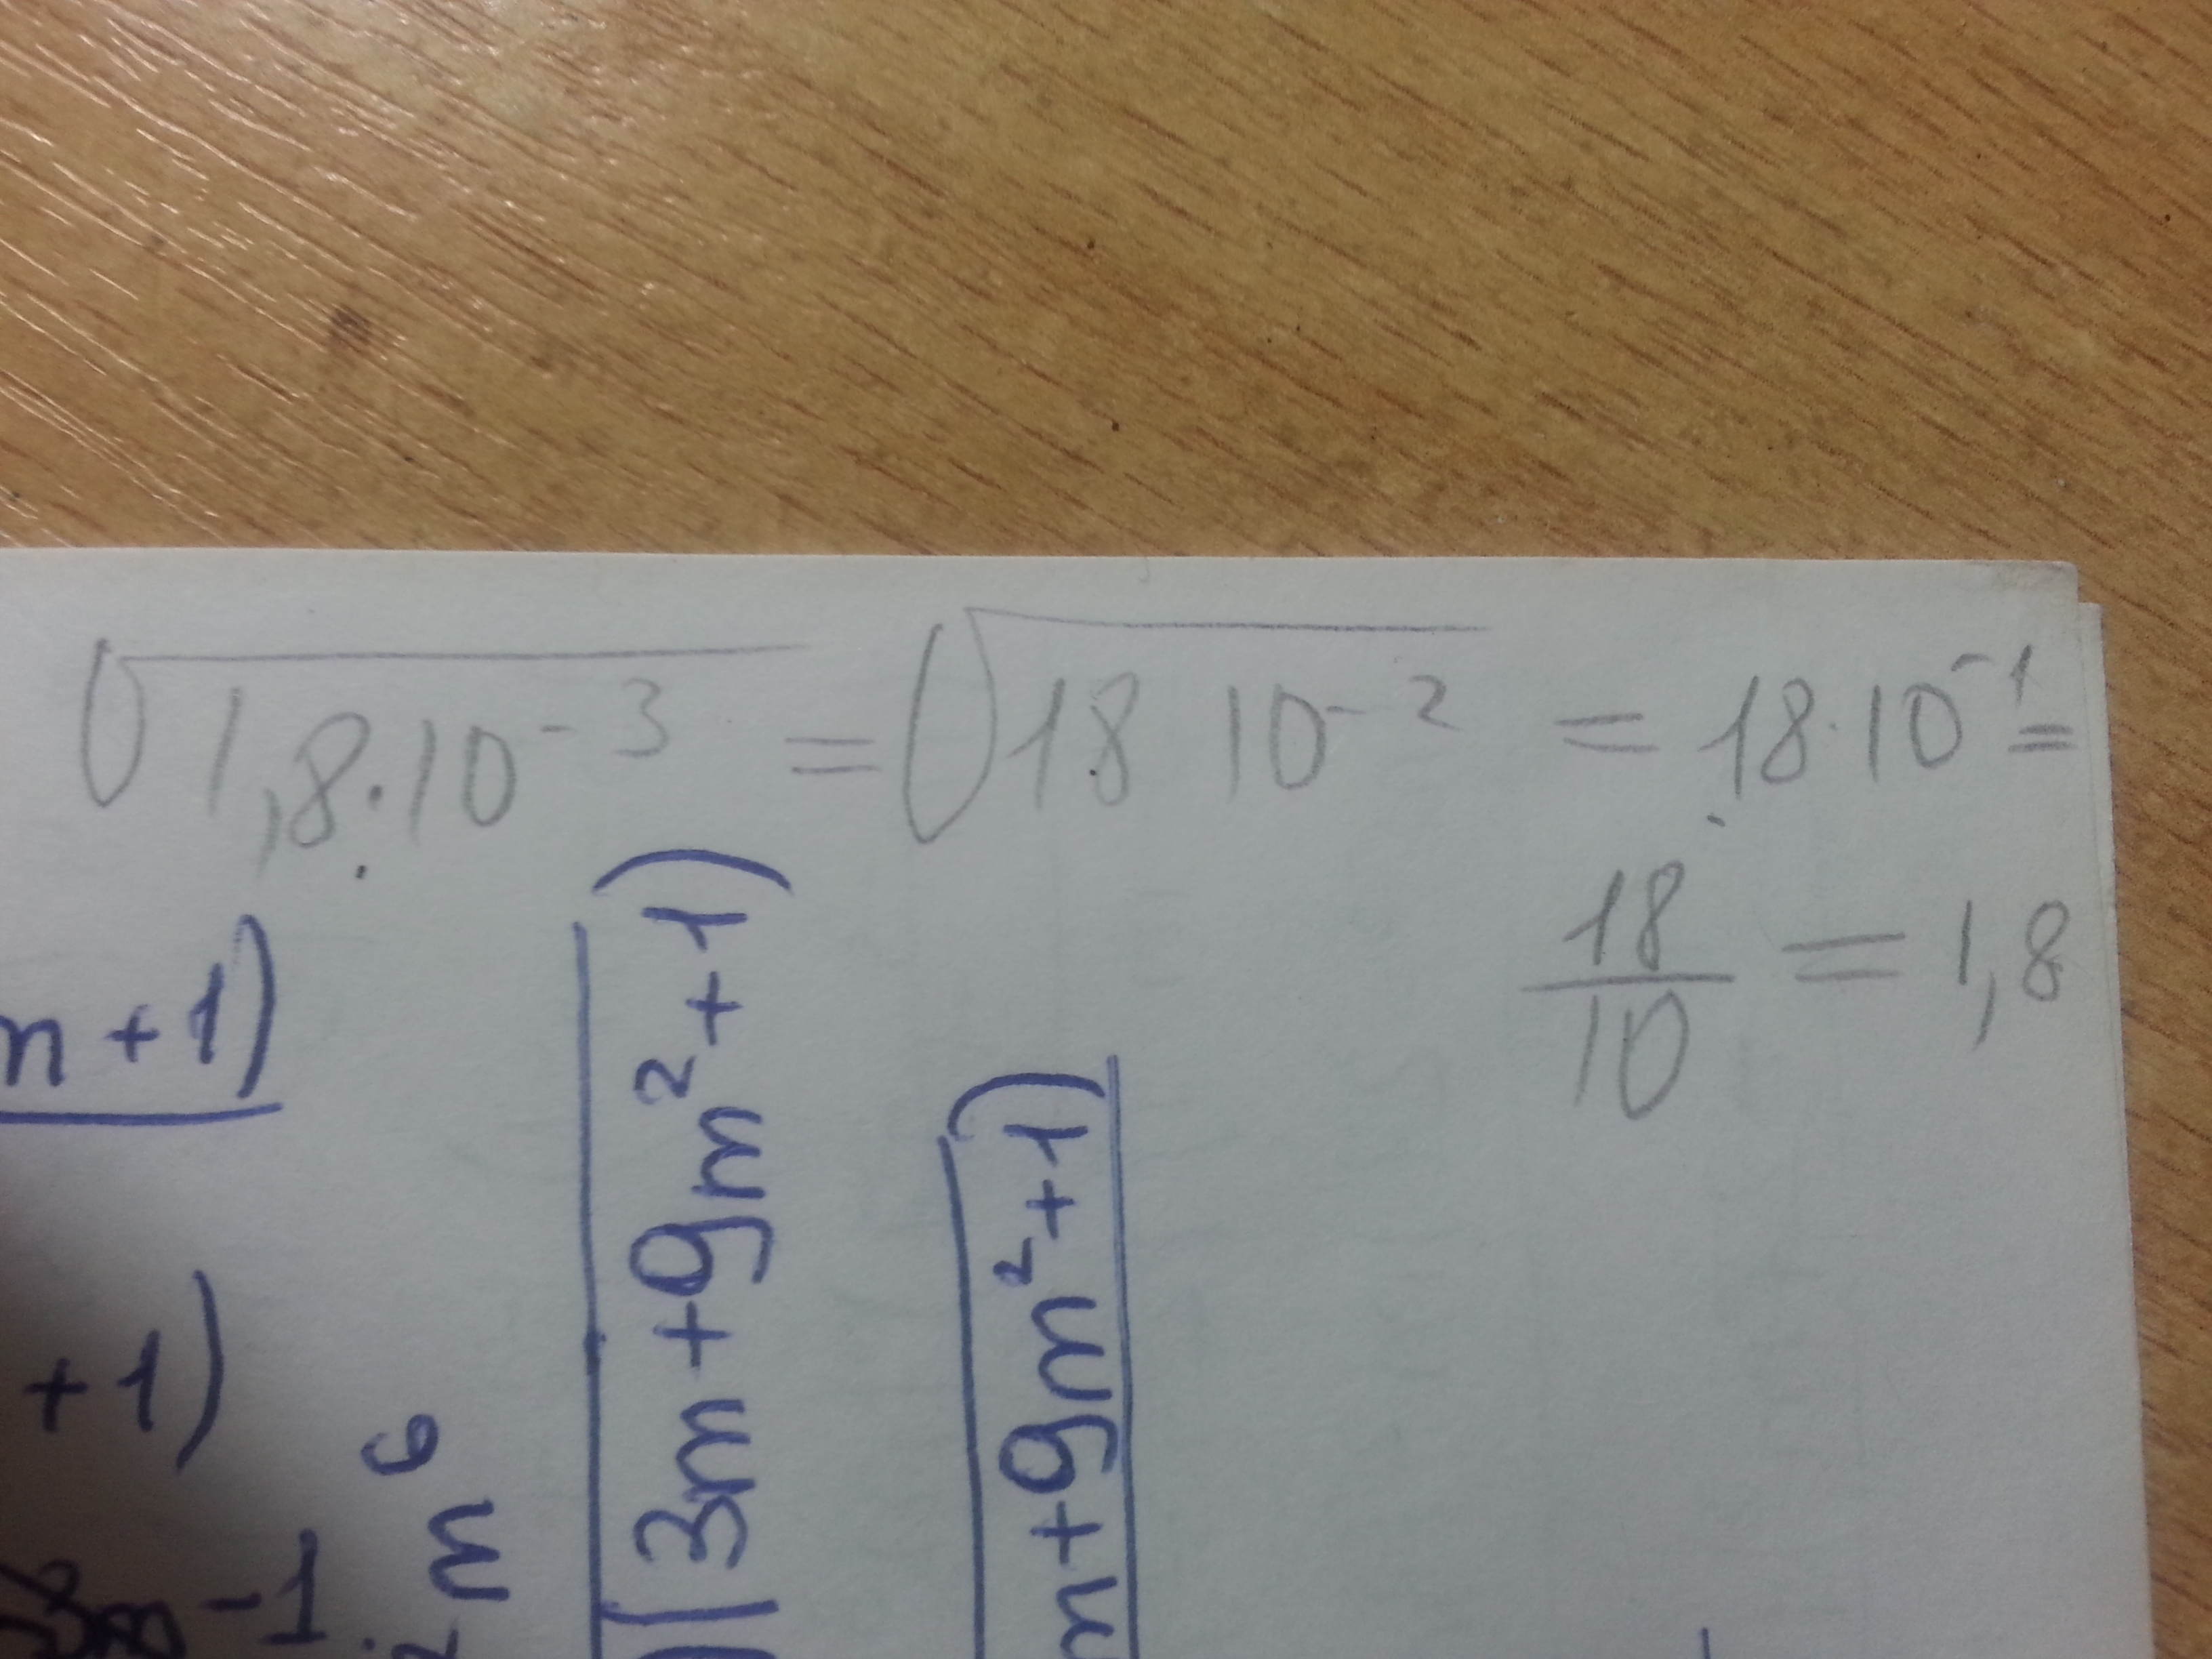 √1,8·10⁻³ = √18 10⁻² = 18·10⁻¹ =
18/10 = 1,8
n + 1)
+1)
-1
n⁶
(3m+9m²+1)
m+9m²+1)